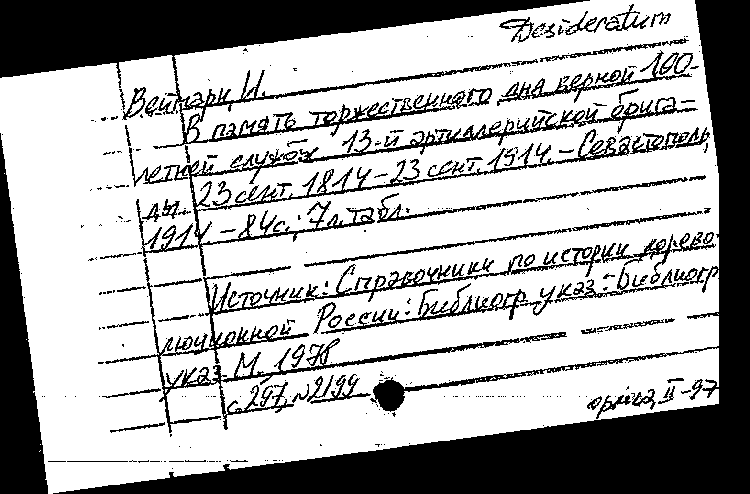 Desideratum
Веймарн, И.
В память торжественного дня верной 100-
летней службы 13-й артиллерийской брига-
ды. 23 сент. 1814 - 23 сент. 1914. - Севастополь,
1914. - 84с.; 7 л. табл.
Источник: Справочники по истории дорево-
люционной России: Библиогр. указ.: Библиогр
указ. М. 1978
с. 297, №2199
II-97